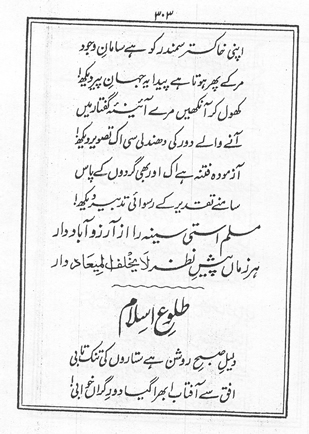 ۳۰۳
اپنی خاکستر سمندر کو ہے سامانِ وجود
مر کے پھر ہوتا ہے پیدا یہ جہانِ پیر دیکھ!
کھول کر آنکھیں مرے آئینۂ گفتار میں
آنے والے دور کی دھندلی سی اک تصویر دیکھ!
آزمودہ فتنہ ہے اک اور بھی گردوں کے پاس
سامنے تقدیر کے رسوائیِ تدبیر دیکھ!
مسلم استی سینہ را از آرزو آباد دار
ہر زماں پیشِ نظر لَا یُخْلِفُ الْمِیعَاد دار
طلوعِ اسلام
دلیلِ صبحِ روشن ہے ستاروں کی تنک تابی
افق سے آفتاب ابھرا گیا دورِ گراں خوابی!